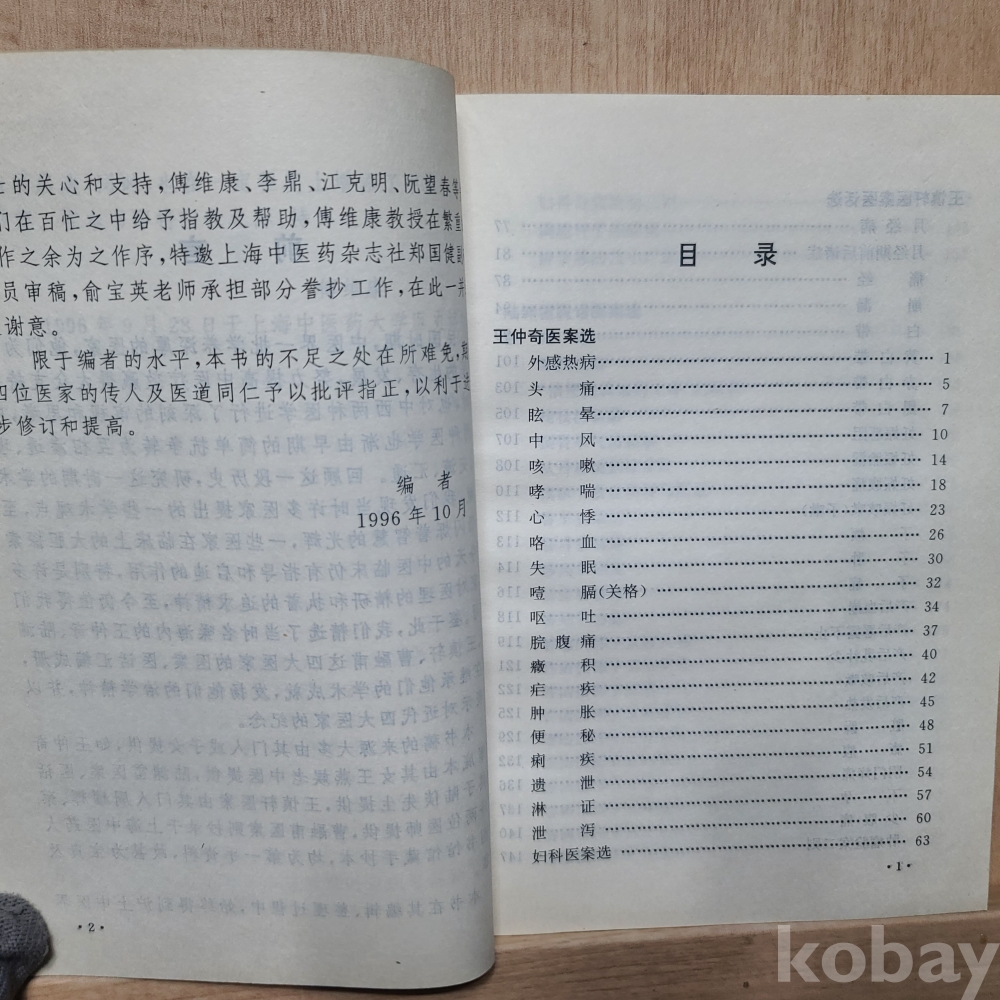 士的关心和支持,傅维康、李鼎、江克明、阮望春等
们在百忙之中给予指教及帮助,傅维康教授在繁重
作之余为之作序,特邀上海中医药杂志社郑国健
员审稿,俞宝英老师承担部分誊抄工作,在此一并
谢意。
限于编者的水平,本书的不足之处在所难免,
四位医家的传人及医道同仁予以批评指正,以利于进
步修订和提高。
编 者
1996年10月
·2·
目 录
王仲奇医案选
外感热病 1
头 痛 5
眩 晕 7
中 风 10
咳 嗽 14
哮 喘 18
心 悸 23
咯 血 26
失 眠 30
噎 膈(关格) 32
呕 吐 34
脘 腹 痛 37
癥 积 40
疟 疾 42
肿 胀 45
便 秘 48
痢 疾 51
遗 泄 54
淋 证 57
泄 泻 60
妇科医案选 63
·1·
kobay